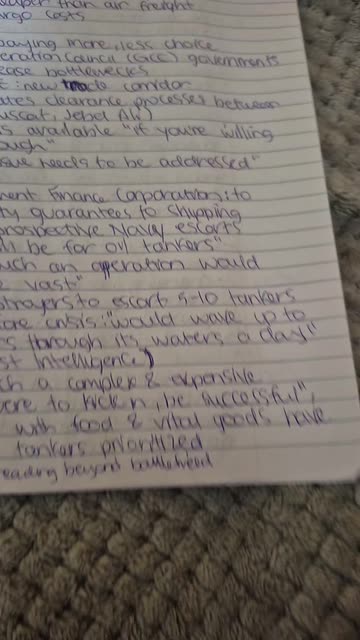 eaper than air freight
rgo costs
paying more, less choice
eration Council (GCC) governments
ease bottlenecks
: new trade corridor
ates clearance processes between
uscat, Jebel Ali)
s available "if you're willing
ough"
sue needs to be addressed"
ment Finance Corporation: to
ty guarantees to shipping
prospective Navy escorts
d be for oil tankers"
uch an operation would
e vast"
stroyers to escort 5-10 tankers
ore crisis: "would wave up to
s through its waters a day"
st Intelligence)
ch a complex & expensive
were to kick in, be successful",
with food & vital goods have
tankers prioritized
reading beyond battlefield